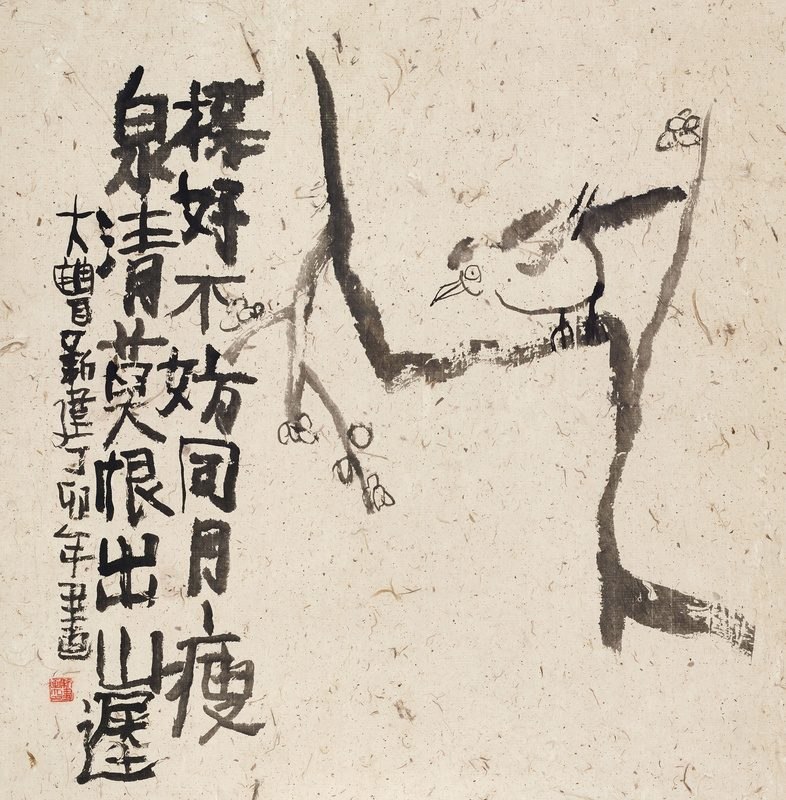 楳好不妨同月瘦
泉清莫恨出山遲
大豐新建丁卯年畫